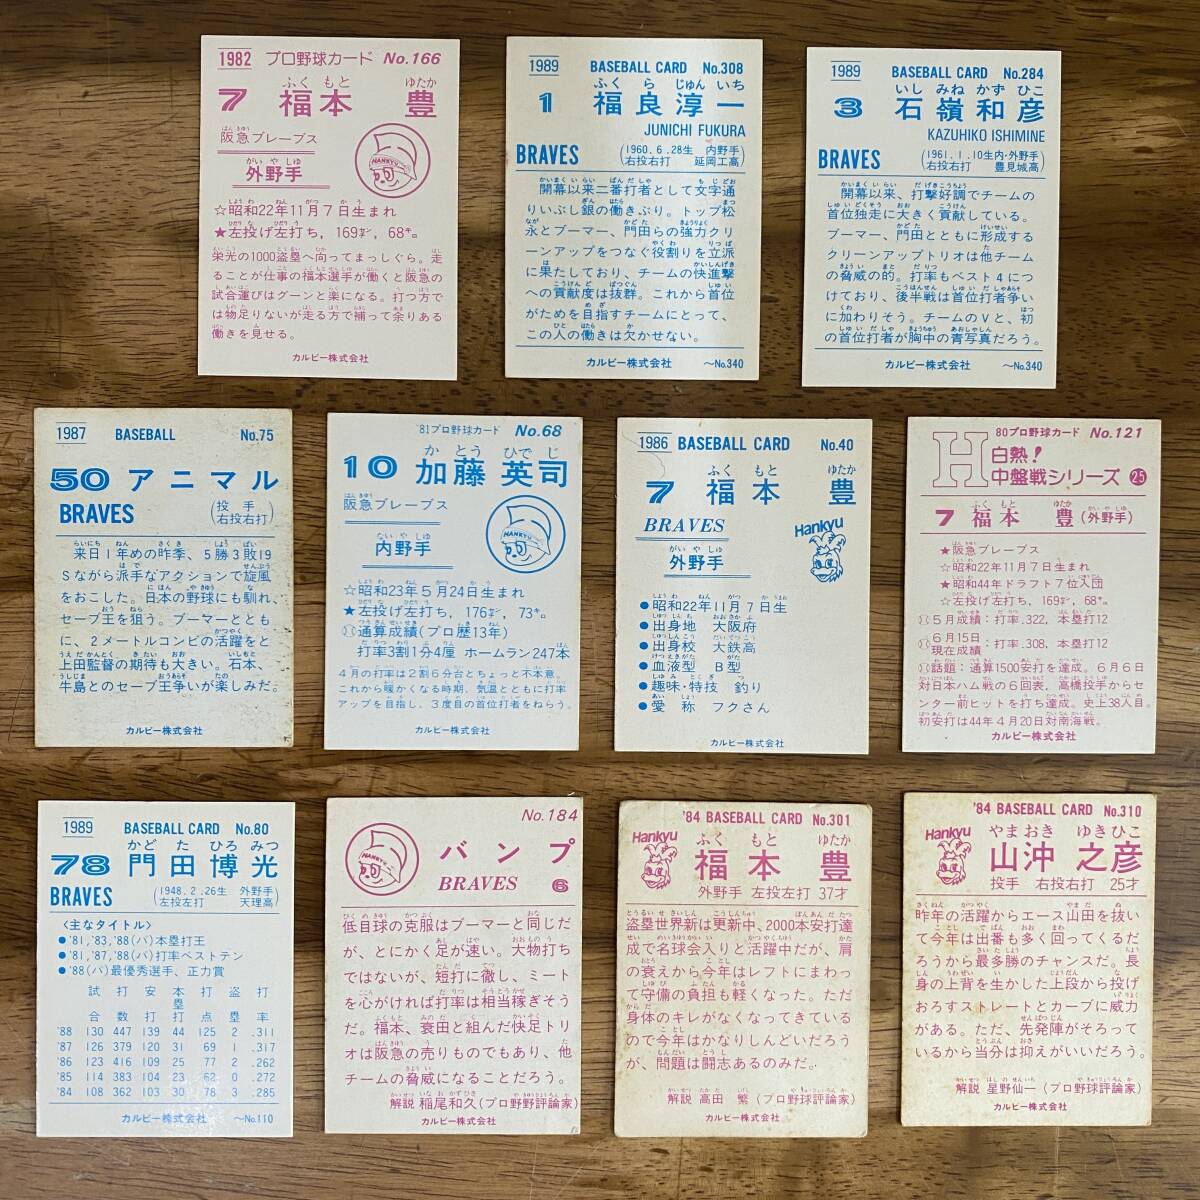 1982 プロ野球カード No.166
ふく もと ゆたか
7 福本 豊
はん きゅう
阪急ブレーブス
がい や しゅ
外野手
HANKYU
☆昭和22年11月7日生まれ
★左投げ左打ち，169㌢，68㌔。
栄光の1000盗塁へ向ってまっしぐら。走
ることが仕事の福本選手が働くと阪急の
試合運びはグーンと楽になる。打つ方で
は物足りないが走る方で補って余りある
働きを見せる。
カルビー株式会社
1989 BASEBALL CARD No.308
ふく ら じゅん いち
1 福良淳一
JUNICHI FUKURA
BRAVES (1960.6.28生 内野手
右投右打 延岡工高)
開幕以来二番打者として文字通
りいぶし銀の働きぶり。トップ松
永とブーマー、門田らの強力クリ
ーンアップをつなぐ役割りを立派
に果たしており、チームの快進撃
への貢献度は抜群。これから首位
がためを目指すチームにとって、
この人の働きは欠かせない。
カルビー株式会社 〜No.340
1989 BASEBALL CARD No.284
いし みね かず ひこ
3 石嶺和彦
KAZUHIKO ISHIMINE
BRAVES (1961.1.10生 内・外野手
右投右打 豊見城高)
開幕以来、打撃好調でチームの
首位独走に大きく貢献している。
ブーマー、門田とともに形成する
クリーンアップトリオは他チーム
の脅威の的。打率もベスト4につ
けており、後半戦は首位打者争い
に加わりそう。チームのV と、初
の首位打者が胸中の青写真だろう。
カルビー株式会社 〜No.340
1987 BASEBALL No.75
50 アニマル
BRAVES (投手
右投右打)
来日1年めの昨季、5勝3敗19
Sながら派手なアクションで旋風
をおこした。日本の野球にも馴れ、
セーブ王を狙う。ブーマーととも
に、2メートルコンビの活躍をと
上田監督の期待も大きい。石本、
牛島とのセーブ王争いが楽しみだ。
カルビー株式会社
'81プロ野球カード No.68
か とう ひで じ
10 加藤英司
はん きゅう
阪急ブレーブス
ない や しゅ
内野手
HANKYU
☆昭和23年5月24日生まれ
★左投げ左打ち，176㌢，73㌔。
通算成績(プロ歴13年)
打率3割1分4厘 ホームラン247本
4月の打率は2割6分台とちょっと不本意。
これから暖かくなる時期、気温とともに打率
アップを目指し、3度目の首位打者をねらう。
カルビー株式会社
1986 BASEBALL CARD No.40
ふく もと ゆたか
7 福本 豊
BRAVES
Hankyu
がい や しゅ
外野手
●昭和22年11月7日生
●出身地 大阪府
●出身校 大鉄高
●血液型 B型
●趣味・特技 釣り
●愛称 フクさん
カルビー株式会社
80プロ野球カード No.121
H 白熱！
中盤戦シリーズ 25
ふく もと ゆたか がい や しゅ
7 福本 豊 (外野手)
★阪急ブレーブス
☆昭和22年11月7日生まれ
★昭和44年ドラフト7位入団
☆左投げ左打ち，169㌢，68㌔。
5月成績：打率.322，本塁打12
6月15日
現在成績：打率.308，本塁打12
話題：通算1500安打を達成。6月6日
対日本ハム戦の6回表，高橋投手からセ
ンター前ヒットを打ち達成。史上38人目。
初安打は44年4月20日対南海戦。
カルビー株式会社
1989 BASEBALL CARD No.80
かど た ひろ みつ
78 門田博光
BRAVES (1948.2.26生 外野手
左投左打 天理高)
〈主なタイトル〉
●'81,'83,'88(パ)本塁打王
●'81,'87,'88(パ)打率ベストテン
●'88(パ)最優秀選手、正力賞
試合 打数 安打 本塁打 打点 盗塁 打率
'88 130 447 139 44 125 2 .311
'87 126 379 120 31 69 1 .317
'86 123 416 109 25 77 2 .262
'85 114 383 104 23 62 0 .272
'84 108 362 103 30 78 3 .285
カルビー株式会社 〜No.110
No.184
HANKYU
バンプ
BRAVES 6
低目球の克服はブーマーと同じだ
が、とにかく足が速い。大物打ち
ではないが、短打に徹し、ミート
を心がければ打率は相当稼ぎそう
だ。福本、蓑田と組んだ快足トリ
オは阪急の売りものでもあり、他
チームの脅威になることだろう。
解説 稲尾和久(プロ野野評論家)
カルビー株式会社
'84 BASEBALL CARD No.301
Hankyu
ふく もと ゆたか
福本 豊
外野手 左投左打 37才
盗塁世界新は更新中、2000本安打達
成で名球会入りと活躍中だが、肩
の衰えから今年はレフトにまわっ
て守備の負担も軽くなった。ただ
身体のキレがなくなってきている
ので今年はかなりしんどいだろう
が、問題は闘志あるのみだ。
解説 高田 繁(プロ野球評論家)
カルビー株式会社
'84 BASEBALL CARD No.310
Hankyu
やまおき ゆきひこ
山沖之彦
投手 右投右打 25才
昨年の活躍からエース山田を抜い
て今年は出番も多く回ってくるだ
ろうから最多勝のチャンスだ。長
身の上背を生かした上段から投げ
おろすストレートとカーブに威力
がある。ただ、先発陣がそろって
いるから当分は抑えがいいだろう。
解説 星野仙一(プロ野球評論家)
カルビー株式会社